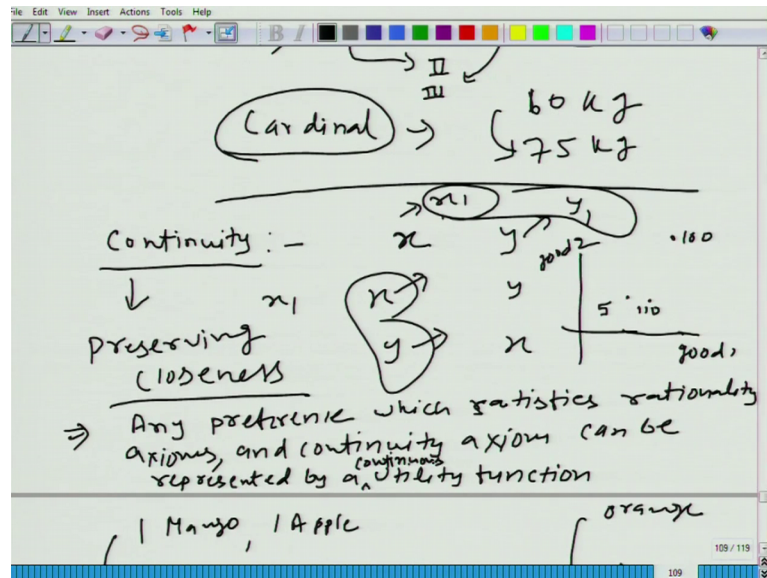 File Edit View Insert Actions Tools Help
B I
II
III
Cardinal → 60 kg
75 kg
x1 y1
Continuity :- x y
good 2
.100
x1 x y
5 .110
y x
good 1
Preserving
Closeness
⇒ Any preference which satisfies rationality
axioms, and continuity axiom can be
represented by a continuous utility function
1 Mango, 1 Apple orange
109 / 119
109